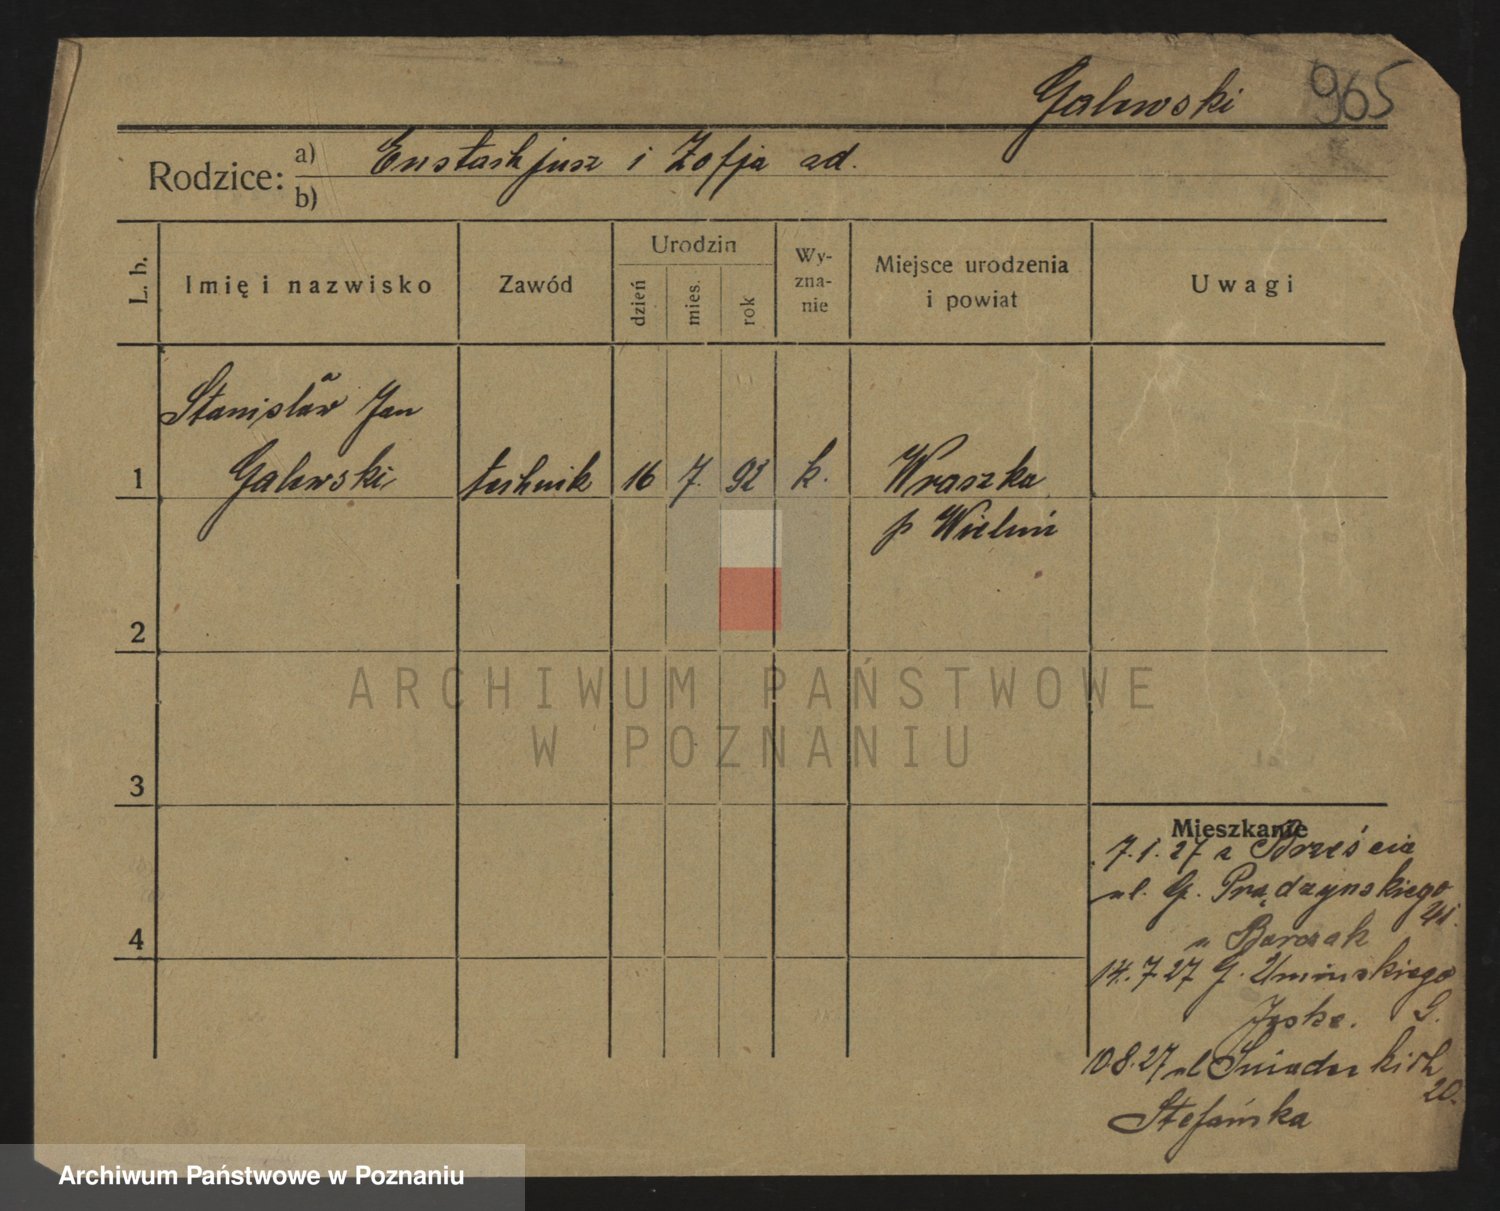 Galewski 965
Rodzice: a) Eustachjusz i Zofja zd.
b)
L. b. Imię i nazwisko Zawód Urodzin dzień mies. rok Wy-zna-nie Miejsce urodzenia i powiat Uwagi
Stanisław Jan
1 Galewski technik 16 7. 92 k. Wraszka
p Wieluń
2
ARCHIWUM PAŃSTWOWE
W POZNANIU
3
Mieszkanie
7.1.27 z Brześcia
ul. G. Prądzynskiego
21.
u Barczak
14.7.27 G. Uminskiego
Jeske. 9.
10.8.27 ul Śniadeckich
20.
Stefańska
4
Archiwum Państwowe w Poznaniu